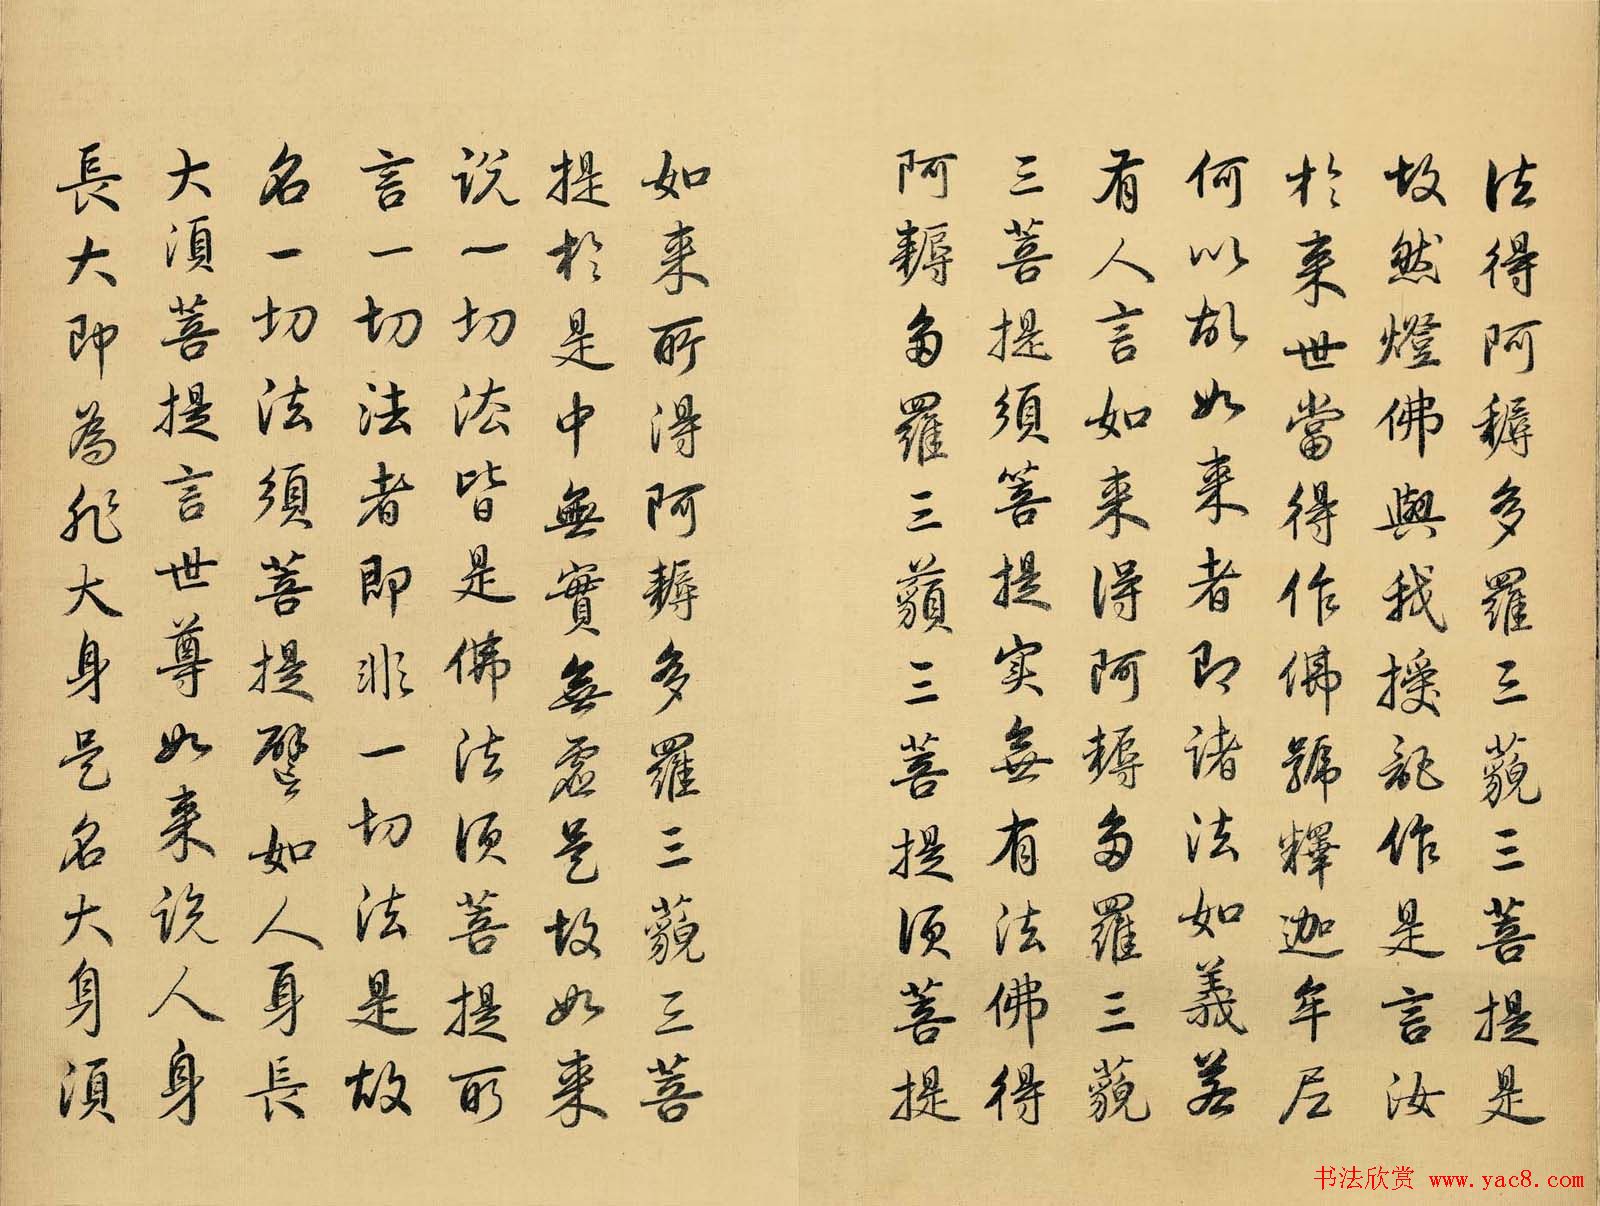 法得阿耨多羅三藐三菩提是
故然燈佛與我授記作是言汝
於来世當得作佛號釋迦牟尼
何以故如来者即諸法如義若
有人言如来得阿耨多羅三藐
三菩提須菩提实無有法佛得
阿耨多羅三藐三菩提須菩提
如来所得阿耨多羅三藐三菩
提於是中無實無虛是故如来
說一切法皆是佛法須菩提所
言一切法者即非一切法是故
名一切法須菩提譬如人身長
大須菩提言世尊如来說人身
長大即為非大身是名大身須
书法欣赏 www.yac8.com